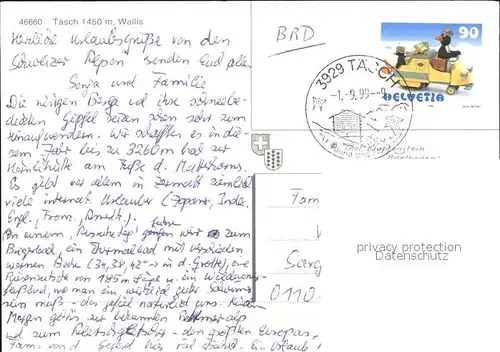 46660 Täsch 1450 m, Wallis
Herzliche Urlaubsgrüße von den
Schweizer Alpen senden Euch allen
Sonja und Familie
Die riesigen Berge und ihre schneebe-
deckten Gipfel reizen schon sehr zum
Hinaufwandern. Wir schafften es in die-
sem Jahr bis zu 3260 m hoch zur
Hörnlihütte am Fuße d. Matterhorns.
Es gibt vor allem in Zermatt ziemlich
viele internat. Urlauber (Japaner, Inder,
Engl., Franz., Amerik.).
An einem Regentag fuhren wir zum
Brigerbad, ein Thermalbad mit verschieden
warmen Becken (34, 38, 42° in d. Grotte), eine
Riesenrutsche von 185 m Länge u. ein Wildwasser-
, wo man ein schwimmen
muß - das gefiel natürlich uns
Morgen geht's zur bekannten
und zum Aletschgletscher - den größten Europas.
Fam. von d. gefällt hier
BRD
90
HELVETIA
3929 TÄSCH
-1.-9.99-9
Fam
Sarg
0110
privacy protection
Datenschutz